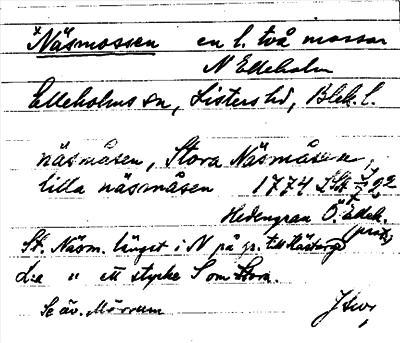 *Näsmossen en l. två mossar
N Elleholm
Elleholms sn, Listers hd, Blek. l.
näsmåsen, Stora Näsmåsen,
lilla näsmåsen 1774 LSt 22
Hedengran Ö. Ellek.
St. Näsm. längst i N på gr. till
L:a " ett stycke S om Stora.
Se äv. Mörrum